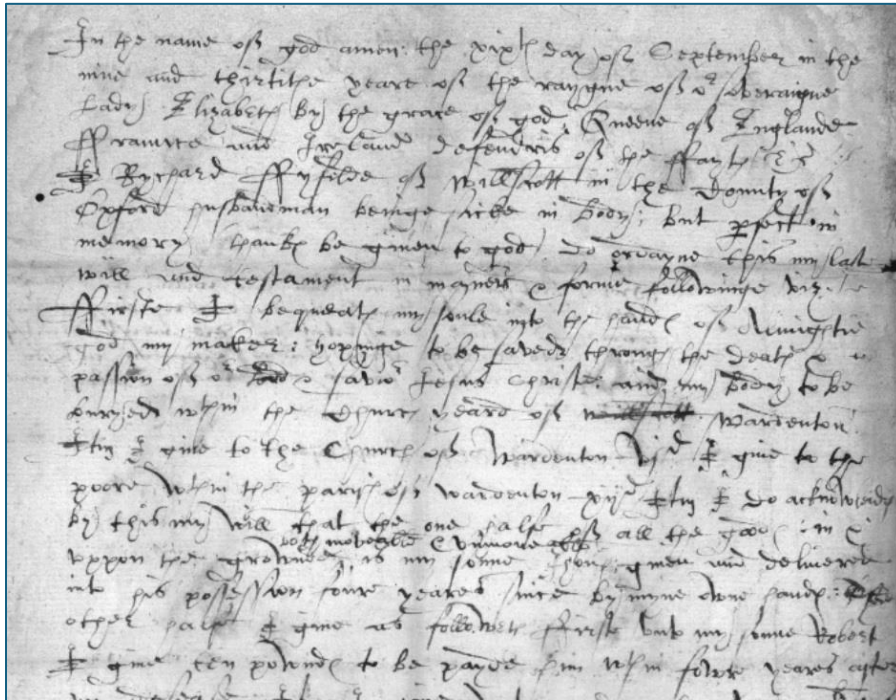 In the name of god amen: the xixth day of September in the
nine and thirtithe yeare of the raygne of or soveraigne
Lady Elizabeth by the grace of god Queene of Englande
ffraunce and Ireland defendris of the ffayth &c
I Rychard ffyfelde of Willscott in the County of
Oxford husbandman beinge sicke in body: but perfect in
memory thankes be given to god: do ordayne this my last
will and testament in maner & forme followinge viz:
ffirste I bequeath my soule into the handes of Almightie
god my maker: hopinge to be saved throug the death &
passion of or Lord & savior Jesus Christe: and my body to be
buryed wthin the Church yeard of Willscott Wardenton
Itm I give to the Church of Wardenton vjd I give to the
poore wthin the parish of Wardenton xijd Itm I do acknowledg
by this my Will that the one halfe of all the goodes in &
both moveable & unmoveable
uppon the grownde is my sonne given and delivered
into his possession foure yeares since by mine owne handes:
other halfe I give as followeth ffirste unto my sonne Robert
I give ten powndes to be payde him wthin fowre yeares after